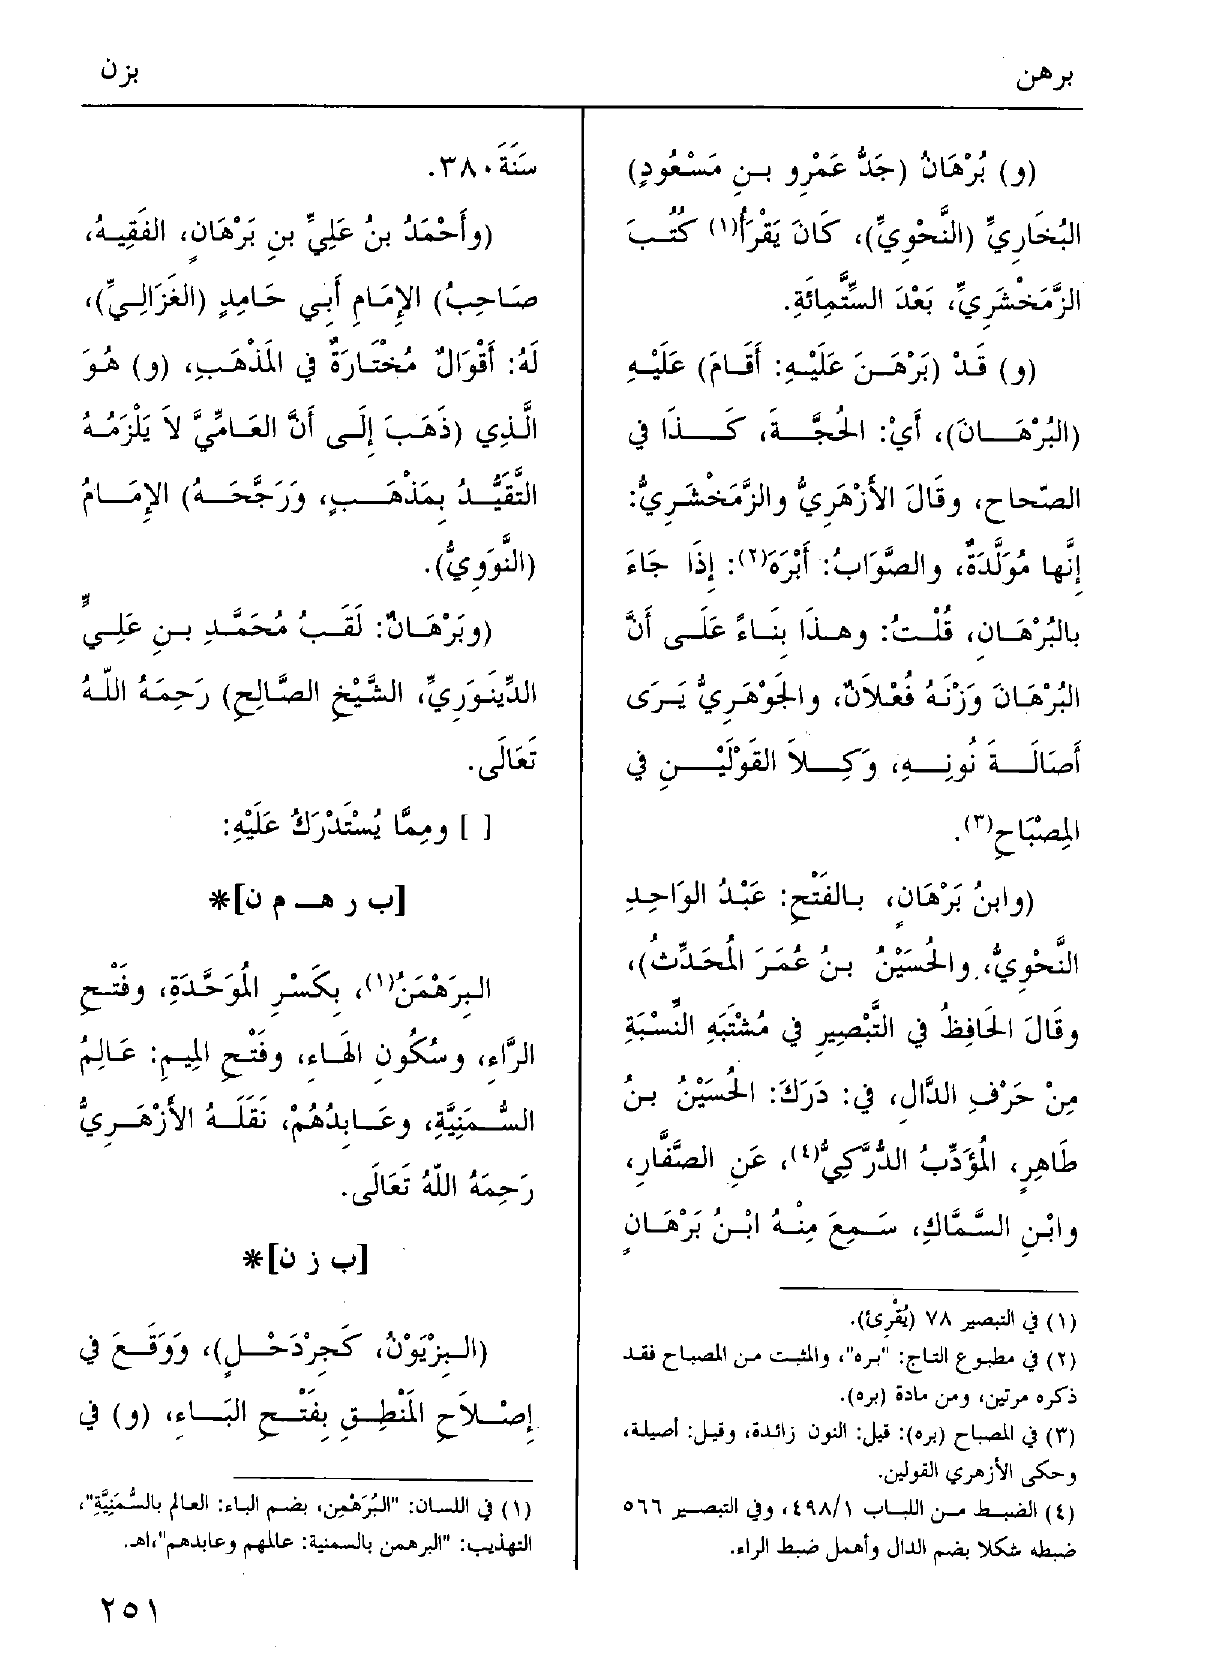 برهن
بزن
(و) بُرْهَانُ (جَدُّ عَمْرِو بنِ مَسْعُودٍ)
البُخَارِيِّ (النَّحْوِيِّ)، كَانَ يَقْرَأُ(١) كُتُبَ
الزَّمَخْشَرِيِّ، بَعْدَ السِّتِّمِائَةِ.
(و) قَدْ (بَرْهَنَ عَلَيْهِ: أَقَامَ) عَلَيْهِ
(البُرْهَانَ)، أَيْ: الحُجَّةَ، كَذَا فِي
الصّحاح، وقَالَ الأَزْهَرِيُّ والزَّمَخْشَرِيُّ:
إِنَّها مُوَلَّدَةٌ، والصَّوَابُ: أَبْرَهَ(٢): إِذَا جَاءَ
بالبُرْهَانِ، قُلْتُ: وهذا بِنَاءً عَلَى أَنَّ
البُرْهَانَ وَزْنُهُ فُعْلَانٌ، والجَوْهَرِيُّ يَرَى
أَصَالَةَ نُونِهِ، وَكِلاَ القَوْلَيْنِ فِي
المِصْبَاحِ(٣).
(وابنُ بَرْهَانٍ، بالفَتْحِ: عَبْدُ الوَاحِدِ
النَّحْوِيُّ، والحُسَيْنُ بنُ عُمَرَ المُحَدِّثُ)،
وقَالَ الحَافِظُ فِي التَّبْصِيرِ فِي مُشْتَبَهِ النِّسْبَةِ
مِنْ حَرْفِ الدَّال، فِي: دَرَكَ: الحُسَيْنُ بنُ
طَاهِرٍ، المُؤَدِّبُ الدَّرَكِيُّ(٤)، عَنِ الصَّفَّارِ،
وابْنِ السَّمَّاكِ، سَمِعَ مِنْهُ ابْنُ بَرْهَانٍ
(١) في التبصير ٧٨ (يُقْرِئ).
(٢) في مطبوع التاج: "بره"، والمثبت من المصباح فقد
ذكره مرتين، ومن مادة (بره).
(٣) في المصباح (بره): قيل: النون زائدة، وقيل: أصيلة،
وحكى الأزهري القولين.
(٤) الضبط من اللباب ٤٩٨/١، وفي التبصير ٥٦٦
ضبطه شكلا بضم الدال وأهمل ضبط الراء.
سَنَةَ ٣٨٠.
(وأَحْمَدُ بنُ عَلِيِّ بنِ بَرْهَانٍ، الفَقِيهُ،
صَاحِبُ) الإِمَامِ أَبِي حَامِدٍ (الغَزَالِيِّ)،
لَهُ: أَقْوَالٌ مُخْتَارَةٌ فِي المَذْهَبِ، (و) هُوَ
الَّذِي (ذَهَبَ إِلَى أَنَّ العَامِّيَّ لاَ يَلْزَمُهُ
التَّقَيُّدُ بِمَذْهَبٍ، ورَجَّحَهُ) الإِمَامُ
(النَّوَوِيُّ).
(وبَرْهَانٌ: لَقَبُ مُحَمَّدِ بنِ عَلِيٍّ
الدِّينَوَرِيِّ، الشَّيْخِ الصَّالِحِ) رَحِمَهُ اللّهُ
تَعَالَى.
[ ] ومِمَّا يُسْتَدْرَكُ عَلَيْهِ:
[ب ر هـ م ن]*
البِرَهْمَنُ(١)، بِكَسْرِ المُوَحَّدَةِ، وفَتْحِ
الرَّاءِ، وسُكُونِ الهَاءِ، وفَتْحِ المِيمِ: عَالِمُ
السُّمَنِيَّةِ، وعَابِدُهُمْ، نَقَلَهُ الأَزْهَرِيُّ
رَحِمَهُ اللّهُ تَعَالَى.
[ب ز ن]*
(البِزْيَوْنُ، كَجِرْدَحْلٍ)، وَوَقَعَ فِي
إِصْلاَحِ المَنْطِقِ بِفَتْحِ البَاءِ، (و) فِي
(١) في اللسان: "البُرَهْمِن، بضم الباء: العالم بالسُّمَنِيَّةِ"،
التهذيب: "البرهمن بالسمنية: عالمهم وعابدهم"،اهـ.
٢٥١